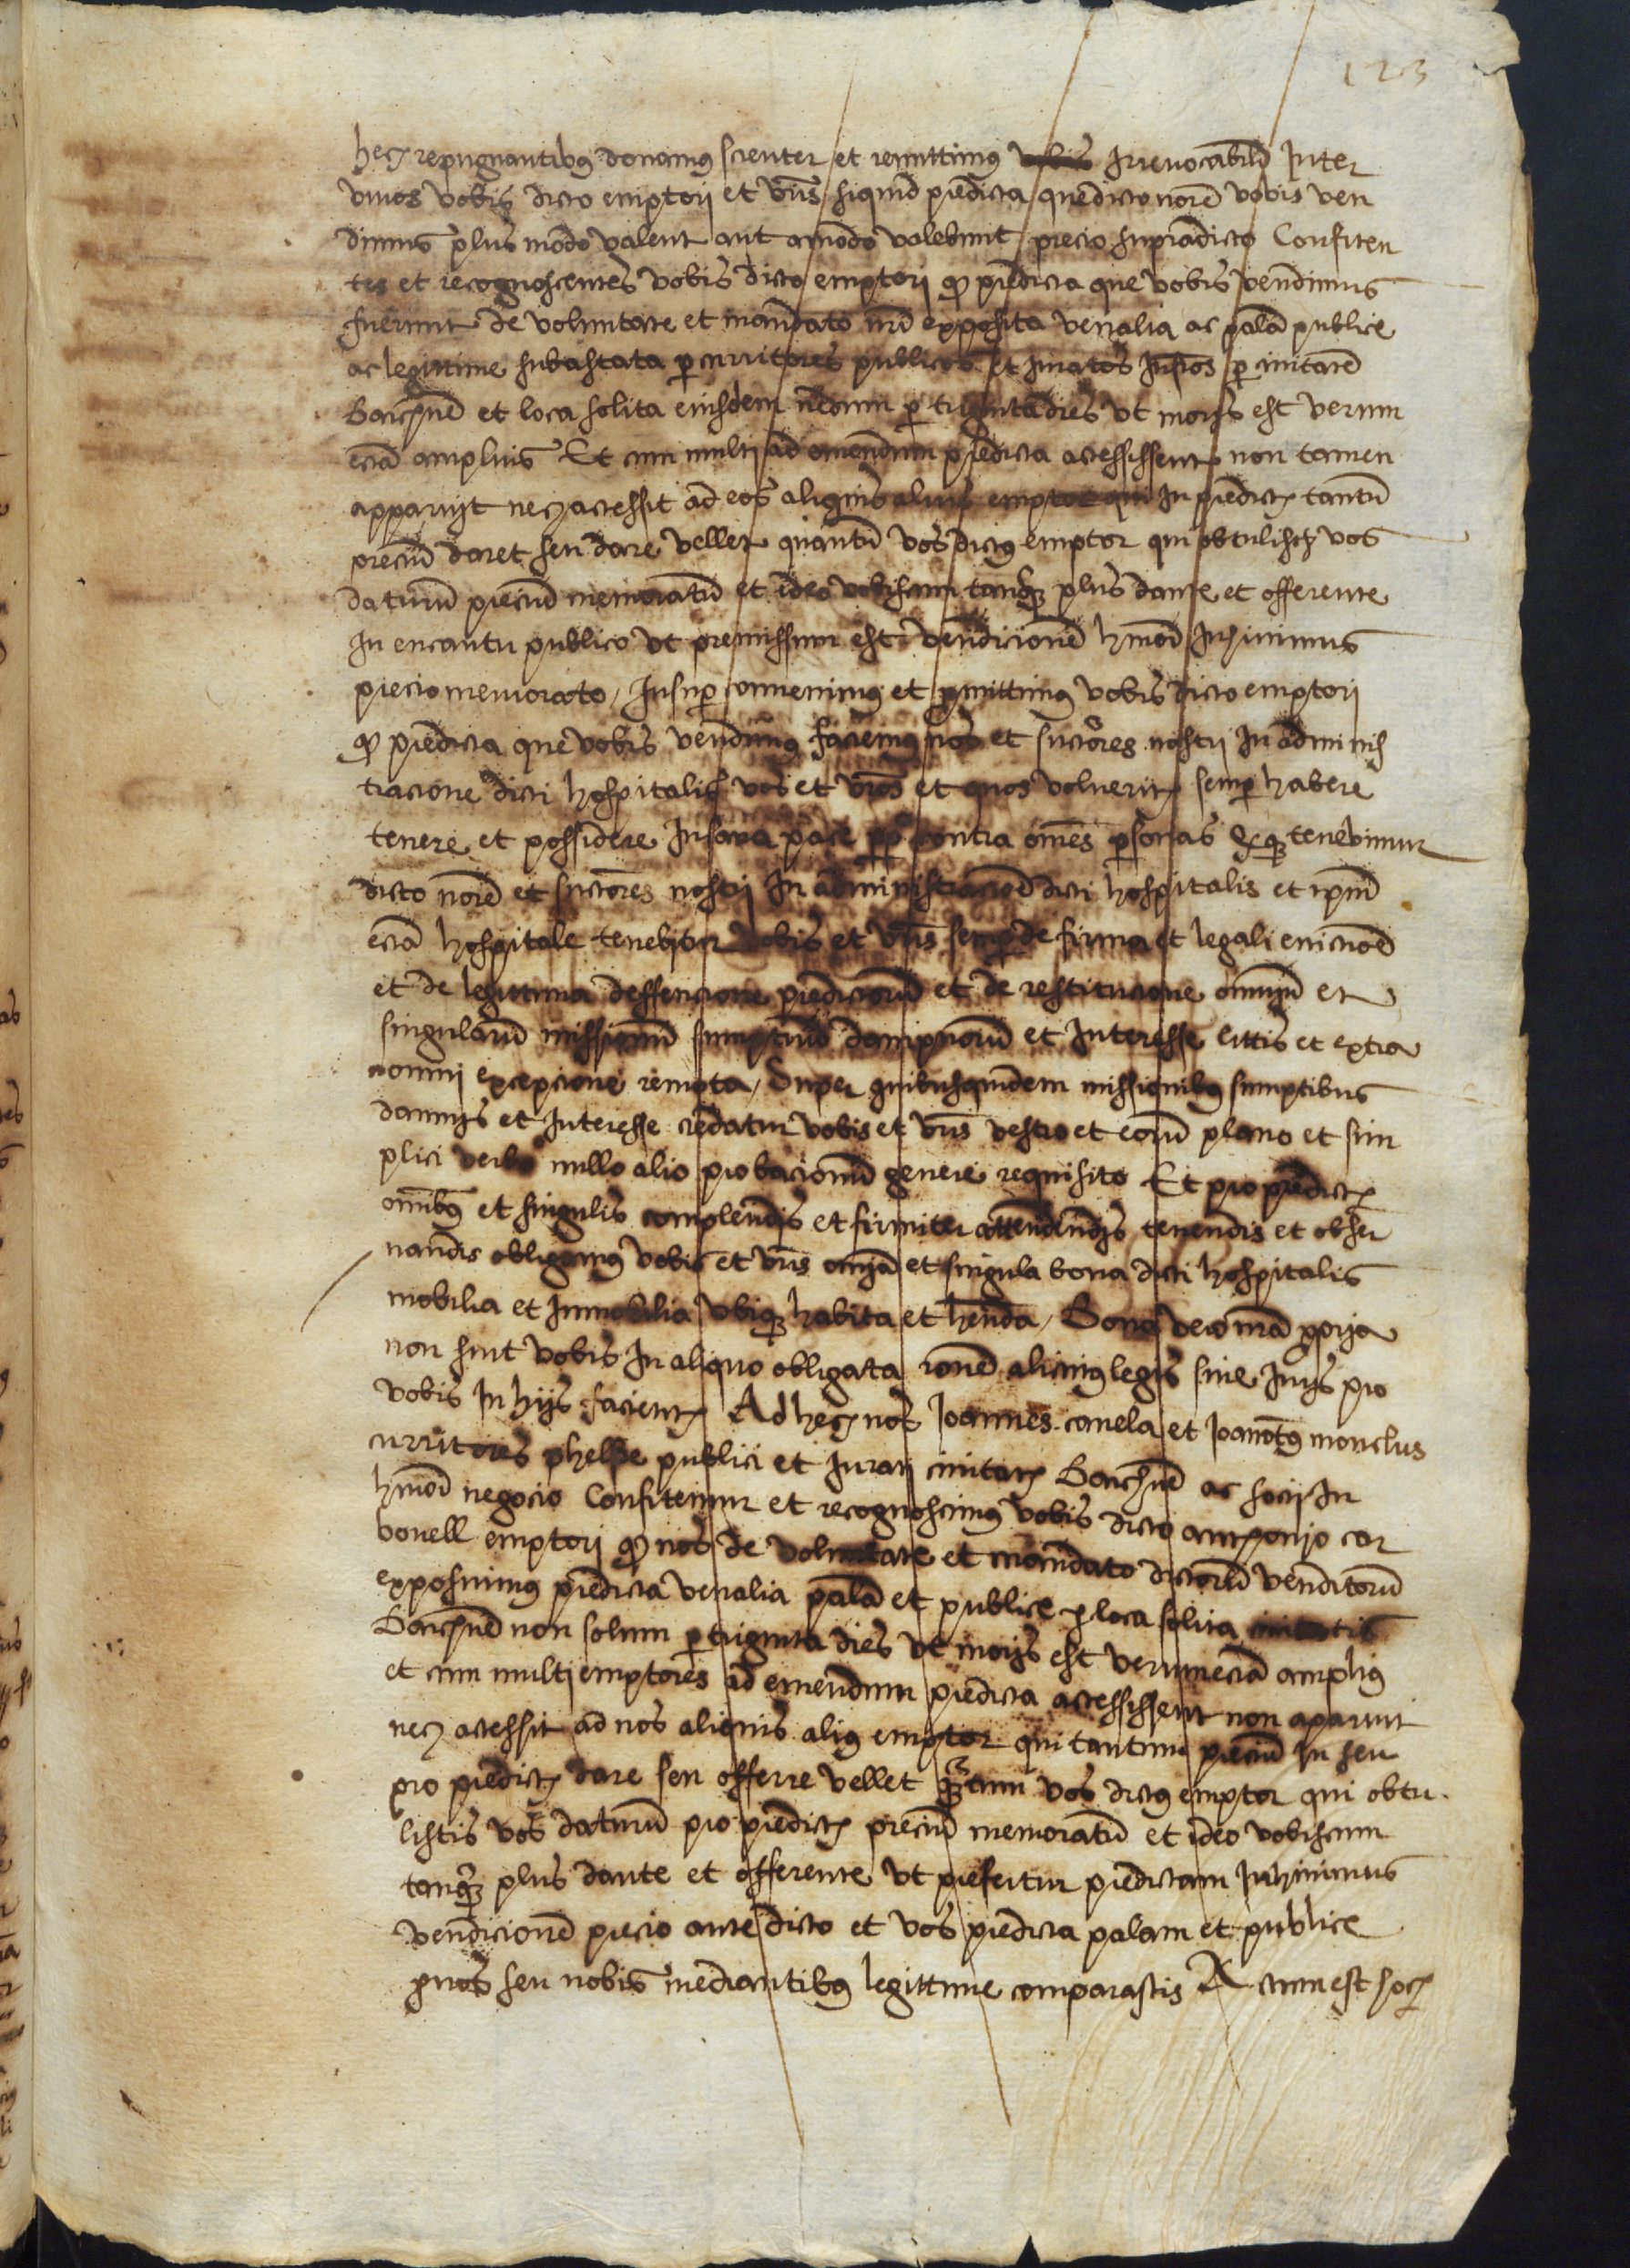 123
hec repugnantibus donamus scienter et remittimus vobis Irrevocabilr Inter
vivos vobis dicto emptori et vris siquid predicta que dicto noīe vobis ven
dimus plus modo valent aut amodo valebunt precio supradicto Confiten
tes et recognoscentes vobis dicto emptori qd predicta que vobis vendimus
fuerunt de voluntate et mandato nrō exposita venalia ac palā publice
ac legittime subastata p curritores publicos et iuratos Infros p civitatē
Barchnē et loca solita eiusdem nedum p triginta dies vt moris est verum
eciā amplius Et cum multi ad emendum predicta accessissent non tamen
apparuit nec accessit ad eos aliquis alius emptor qui In predictis tantū
preciū daret seu dare vellet quantū vos dictus emptor qui obtulistis vos
daturū preciū memoratū et ideo vobiscum tanqz plus dante et offerente
In encantu publico vt premissum est vendicionē hmōi Inhivimus
precio memorato / Insup convenimus et pmittimus vobis dicto emptori
qd predicta que vobis vendimus faciemus nos et succōres nostri In adminis
tracione dicti hospitalis vos et vros et quos volueritis semp habere
tenere et possidere In sana pace ppō contra omēs psonas Et qz tenebimur
dicto noīe et succōres nostri In administracionē dicti hospitalis et ipm
eciā hospitale tenebitur vobis et vris semp de firma et legali eviccionē
et de legittima deffencione predictorū et de restitucione omniū et
singularū missionū sumptuū dampnorū et Interesse littis et extra
omni excepcione remota / Super quibusquidem missionibus sumptibus
damnis et Interesse credatur vobis et vris vestro et eorū plano et sim
plici verbo nullo alio probacionū genere requisito Et pro predictis
omībus et singulis complendis et firmiter attendendis tenendis et obser
vandis obligamus vobis et vris omnia et singula bona dicti hospitalis
mobilia et Inmobilia vbiqz habita et hēnda / Bona vero nrā ppria
non sint vobis In aliquo obligata roē alicuius legis sive Iuris pro
vobis In hiis facientis Ad hec nos Joannes canela et Joanotus monclus
curritores phelpe publici et Iurati civitatis Barchnē ac socii In
hmōi negocio Confitemur et recognoscimus vobis dicto anthonio car
bonell emptori qd nos de voluntate et mandato dictorū venditorū
exposuimus predicta venalia palā et publice p loca solita civitatis
Barchnē non solum p triginta dies vt moris est verumeciā amplius
et cum multi emptores ad emendum predicta accessissent non aparuit
nec accessit ad nos aliquis alius emptor qui tantum preciū In seu
pro predictis dare seu offerre vellet qzntum vos dictus emptor qui obtu
listis vos daturū pro predictis preciū memoratū et ideo vobiscum
tanqz plus dante et offerente vt prefertur predictam Inhivimus
vendicionē precio ante dicto et vos predicta palam et publice
p nos seu nobis mediantibus legittime comparastis Actum est hoc